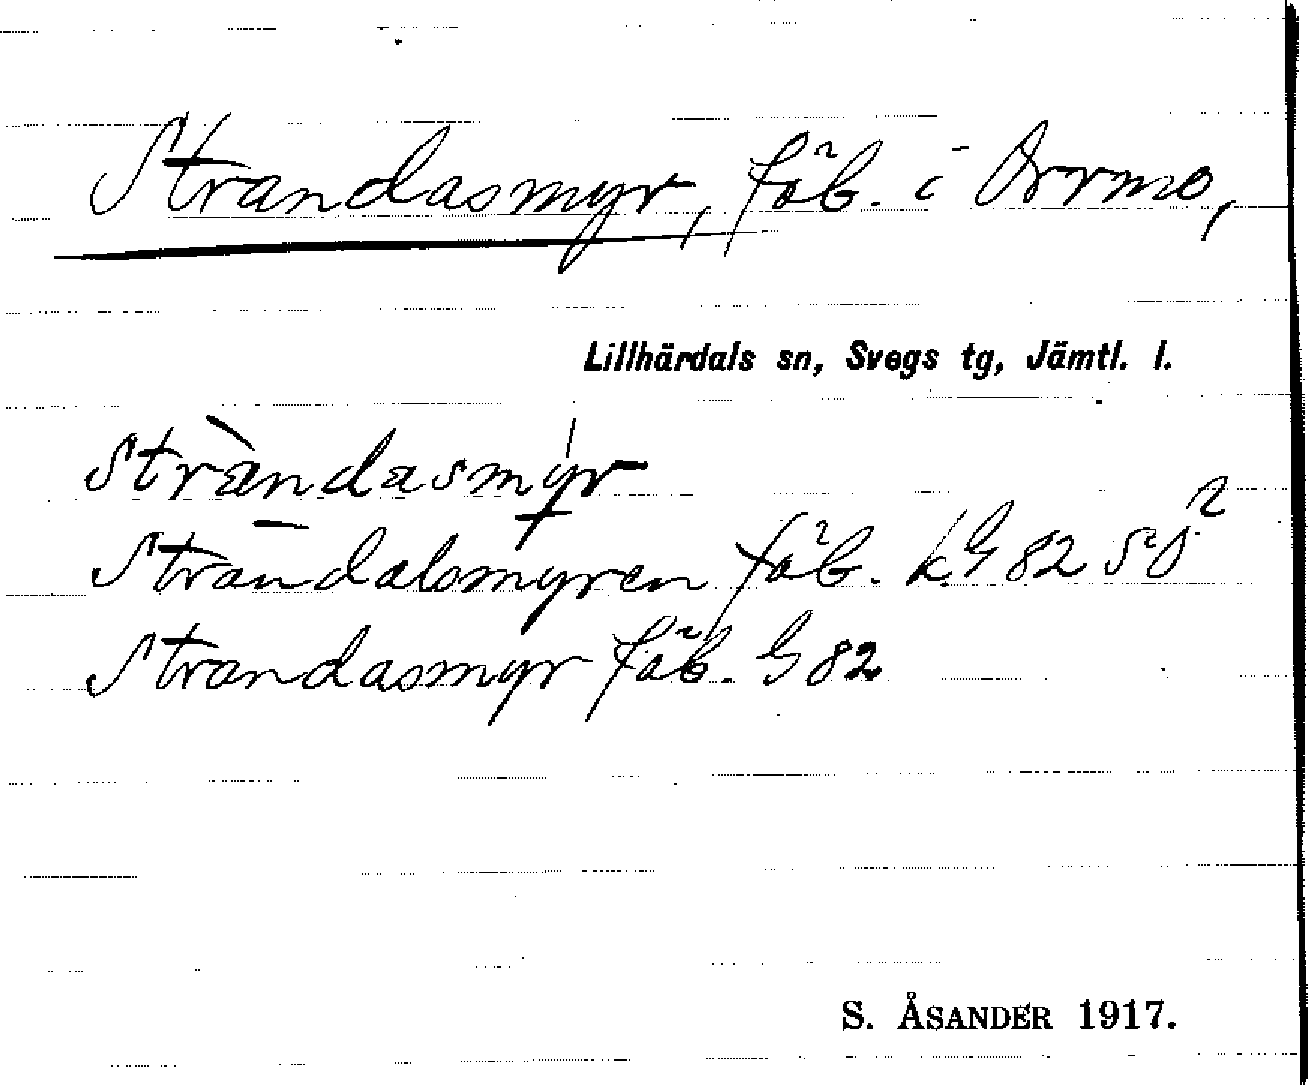 Strandasmyr, fäb. i Orrmo,
Lillhärdals sn, Svegs tg, Jämtl. l.
stràndasmýr
Strandalsmyren fäb. kG 82 SV²
Strandasmyr fäb. G 82
S. ÅSANDER 1917.